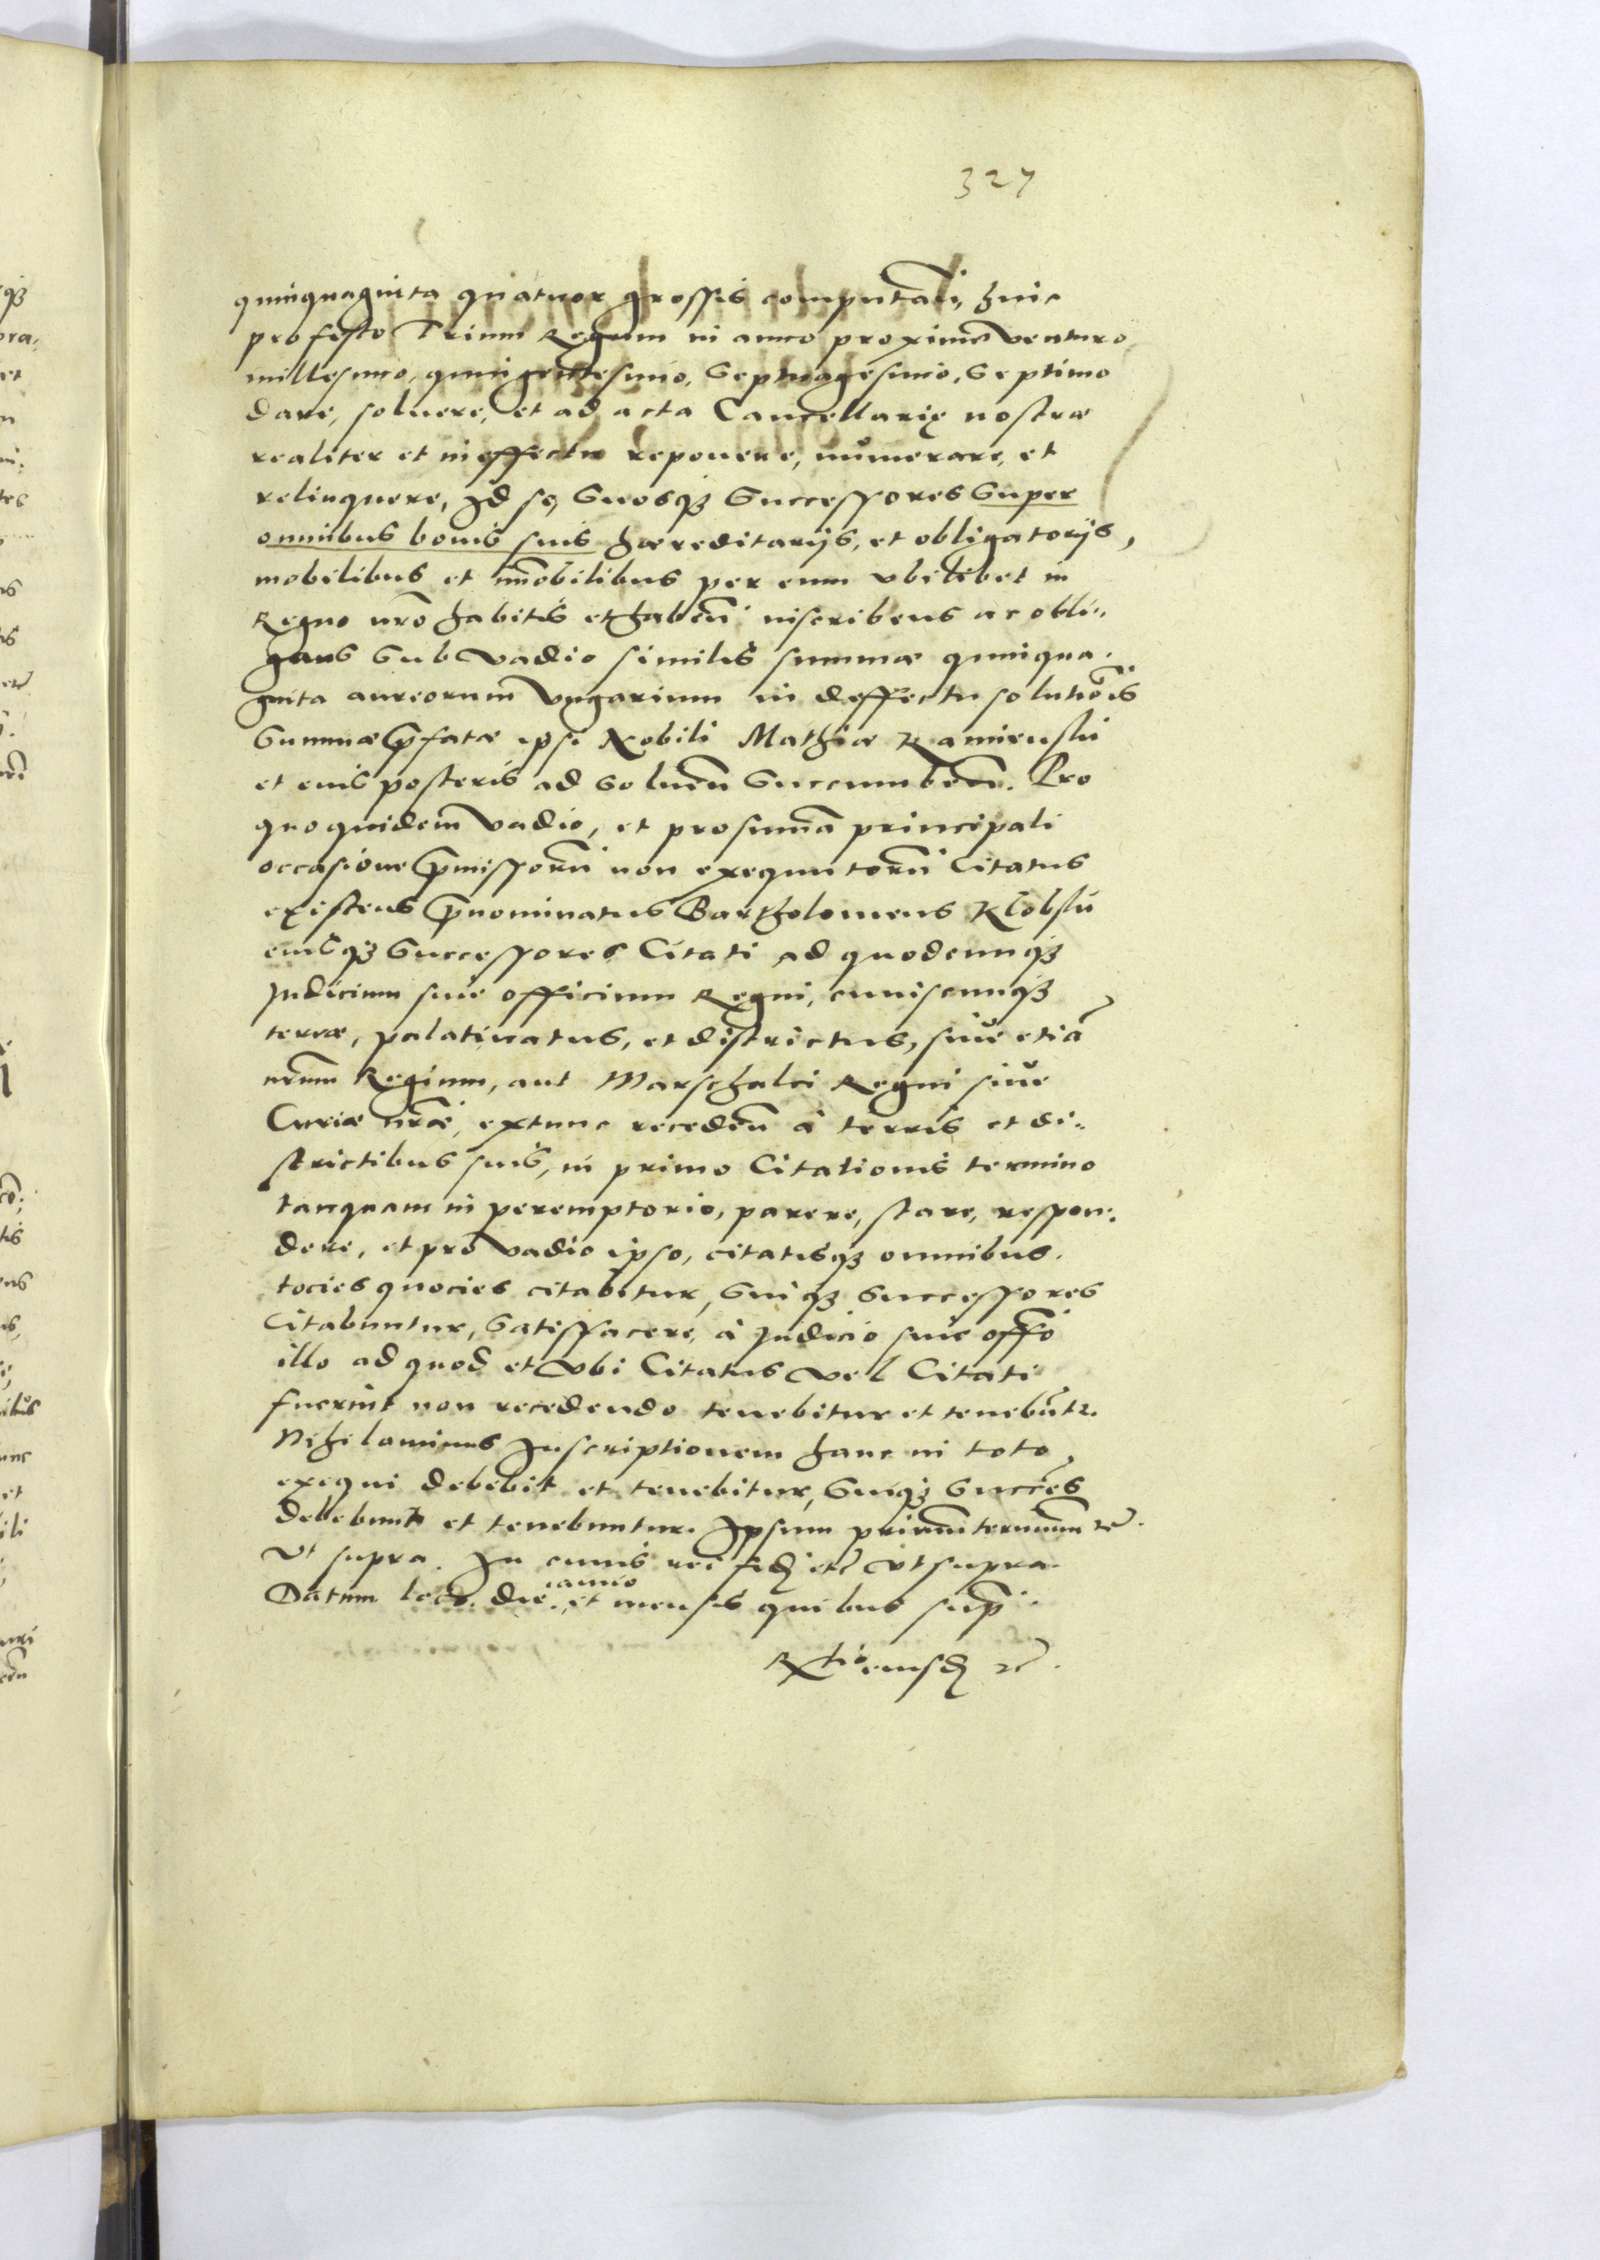 327
quinquaginta quatuor grossis computañ, huic
pro festo Trium Regum in anno proximè venturo
millesimo, quingentesimo, Septuagesimo, Septimo
dare, soluere, et ad acta Cancellarię nostræ
realiter et in effectu reponere, numerare, et
relinquere, Id se, Suosq₃ Successores Super
omnibus bonis suis hæreditarijs, et obligatorijs,
mobilibus et im̃obilibus per eum vbilibet in
Regno nr̃o habitis et habeñ inscribens ac obli-
gans Sub vadio similis summæ quinqua-
ginta aureorum Vngarium in deffectu solutiõis
Summæ p̃fatæ ipsi Nobili Mathiæ Kamienski
et eius posteris ad Soluẽn Succumbẽn. Pro
quo quidem vadio, et pro sum̃a principali
occasione p̃missorũ non exequutorũ Citatus
existens p̃nominatus Bartholomeus Klobski
eiusq₃ Successores Citati ad quodcunq₃
Judicium siue officium Regni, cuiuscunq₃
terræ, palatinatus, et districtus, siue etiã
nr̃um Regium, aut Marschalci Regni siue
Curiæ nr̃æ, extunc recedẽn à terris et di-
strictibus suis, in primo Citationis termino
tanquam in peremptorio, parere, stare, respon-
dere, et pro vadio ipso, citatisq₃ omnibus.
tocies quocies citabitur, Suiq₃ Successores
Citabuntur, Satisfacere, à Judicio siue offõ
illo ad quod et vbi Citatus vel Citati
fuerint non recedendo tenebitur et tenebũtr.
Nihilominus Inscriptionem hanc in toto
exequi debebit et tenebitur, Suiq₃ Succẽs
debebunt et tenebuntur. Ipsum primũ terminum etc̃.
Vt supra. In cuius rei fidẽ etc̃ vt supra.
Datum loco. die, anno et mensis quibus sup̃.
Rx̃tio eiusdẽ etc̃.